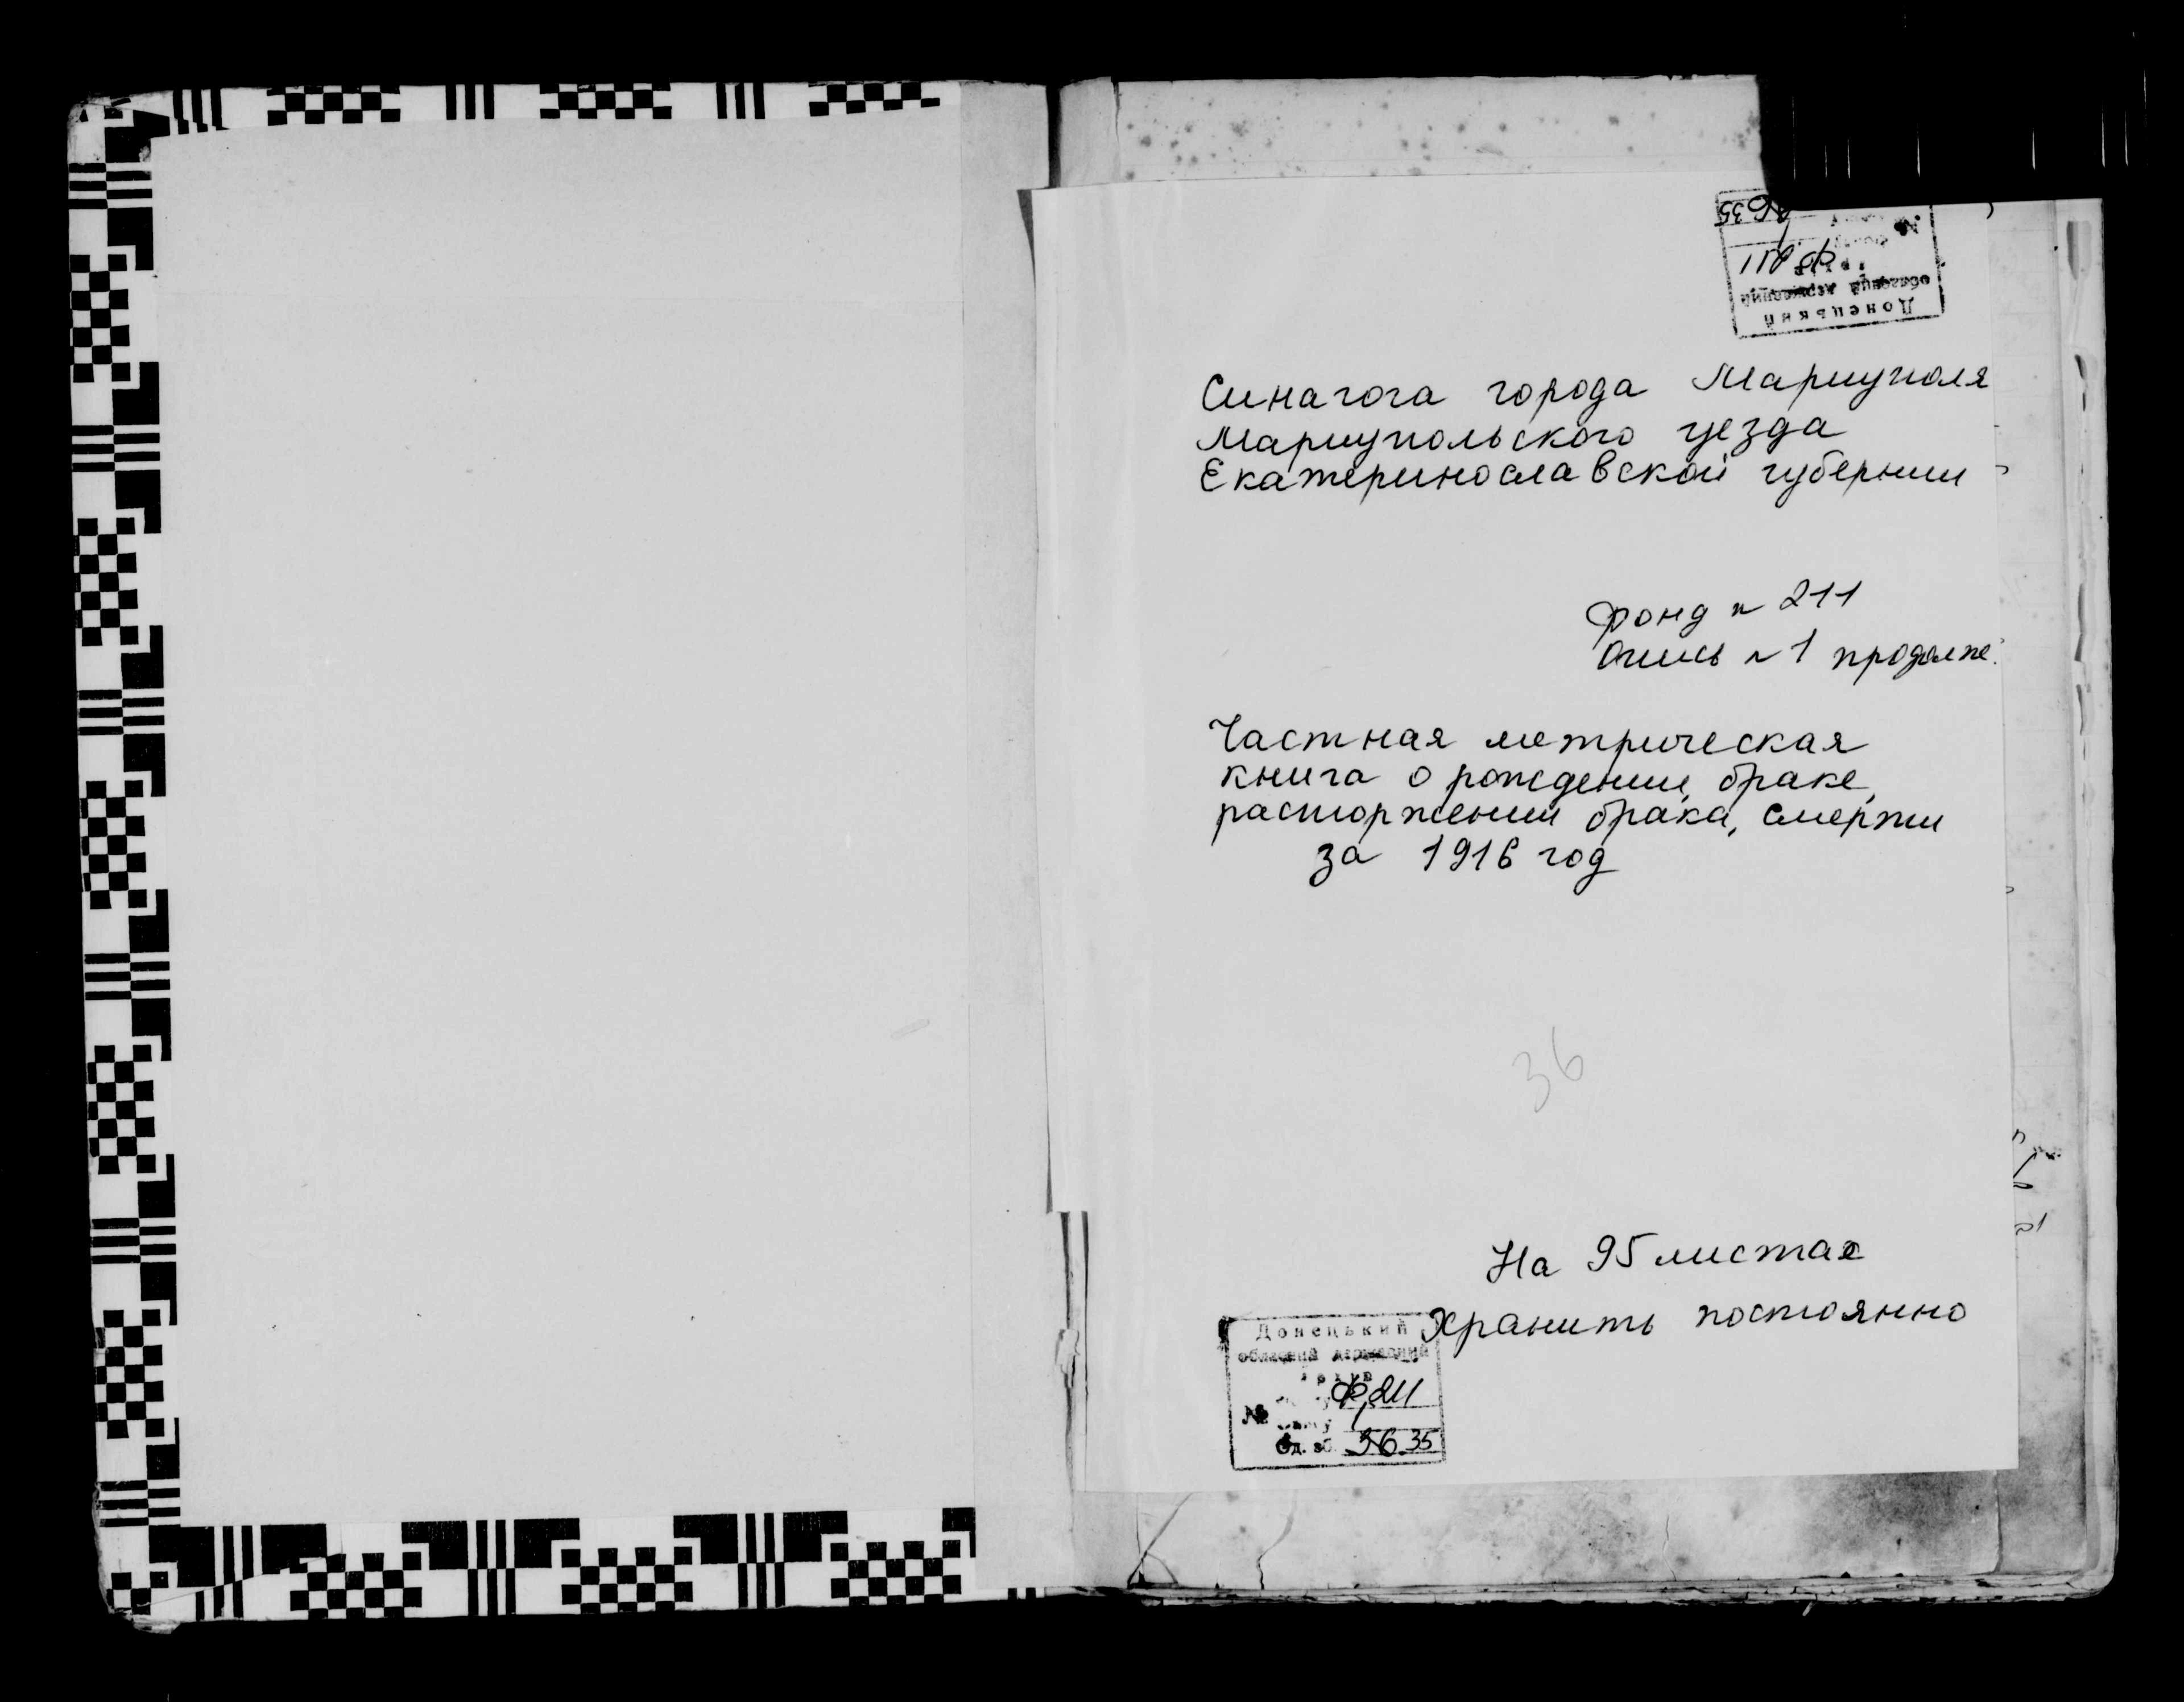 Синагога города Мариуполя
Мариупольского уезда
Екатеринославской губернии
Фонд № 211
Опись № 1 продолже.
Частная метрическая
книга о рождении, браке,
расторжении брака, смерти
за 1916 год
36
На 95 листах
Хранить постоянно
Донецький
обласний державний
архів
№ Ф. 211
1
Од. зб. 36 35
Донецький
обласний державний
Ф 211
№
36 35